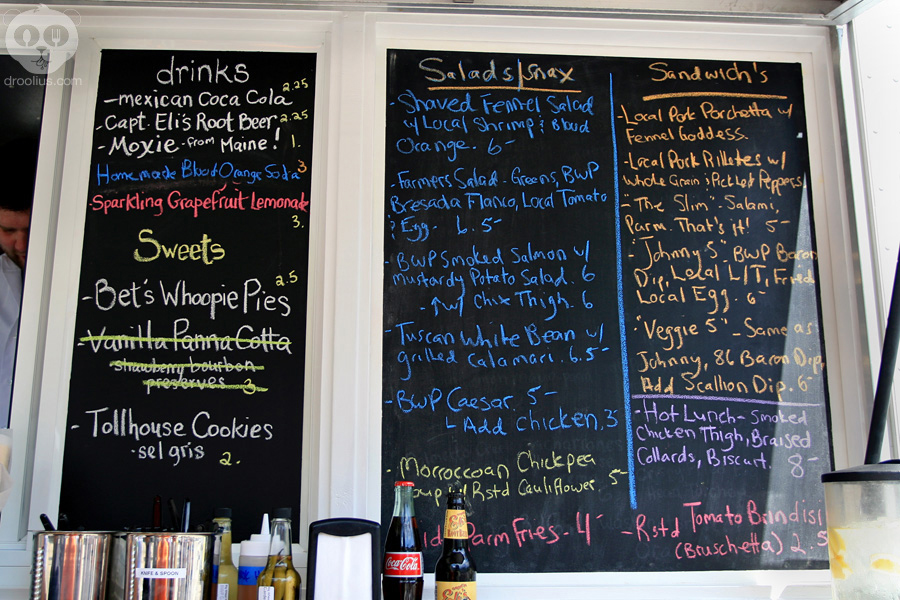 droolius.com
drinks
- mexican Coca Cola 2.25
- Capt. Eli's Root Beer 2.25
- Moxie - from Maine! 1.
Homemade Blood Orange Soda 3
Sparkling Grapefruit Lemonade 3.
Sweets
- Bet's Whoopie Pies 2.5
- Vanilla Panna Cotta
strawberry bourbon
preserves 3
- Tollhouse Cookies
- sel gris 2.
Salads/Snax
- Shaved Fennel Salad
w/ Local Shrimp & Blood
Orange. 6-
- Farmers Salad - Greens, BWP
Bresada Flanco, Local Tomato
& Egg. 6.5-
- BWP Smoked Salmon w/
Mustardy Potato Salad. 6
w/ Chix Thigh. 6
- Tuscan White Bean w/
grilled Calamari. 6.5-
- BWP Caesar. 5-
Add Chicken. 3
- Morroccoan Chickpea
Soup w/ Rstd Cauliflower. 5-
Parm Fries. 4-
Sandwich's
- Local Pork Porchetta w/
Fennel Goddess.
- Local Pork Rillates w/
Whole Grain & Pickled Peppers
- "The Slim" - Salami,
Parm. That's it! 5-
- "Johnny 5" - BWP Bacon
Dip, Local L/T, Fried
Local Egg. 6-
- "Veggie 5" - Same as
Johnny, 86 Bacon Dip,
Add Scallion Dip. 6-
- Hot Lunch - Smoked
Chicken Thigh, Braised
Collards, Biscuit. 8-
- Rstd Tomato Brindisi
(Brusch-etta) 2.5
KNIFE & SPOON
Coca-Cola